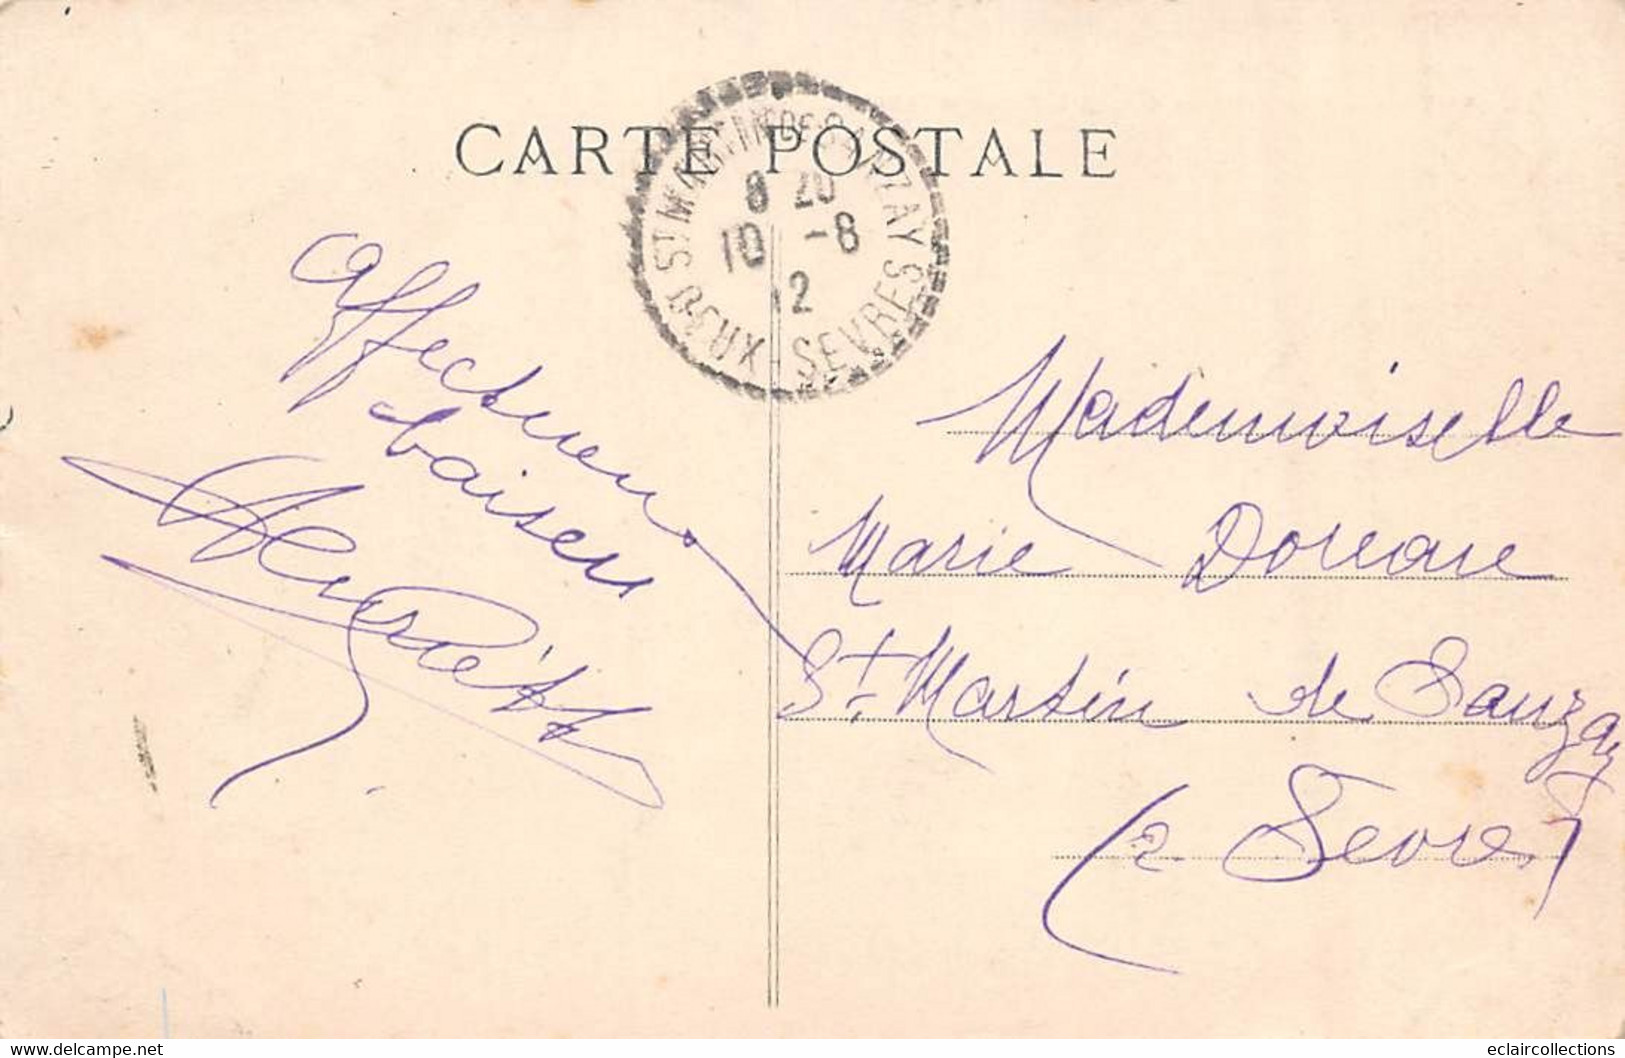 CARTE POSTALE
ST MARTIN DE SANZAY
8 20
10 -8
12
DEUX-SEVRES
Affectueux
baisers
Mademoiselle
Marie
St Martin de Sauzay
(2 Sèvres)
www.delcampe.net
eclaircollections